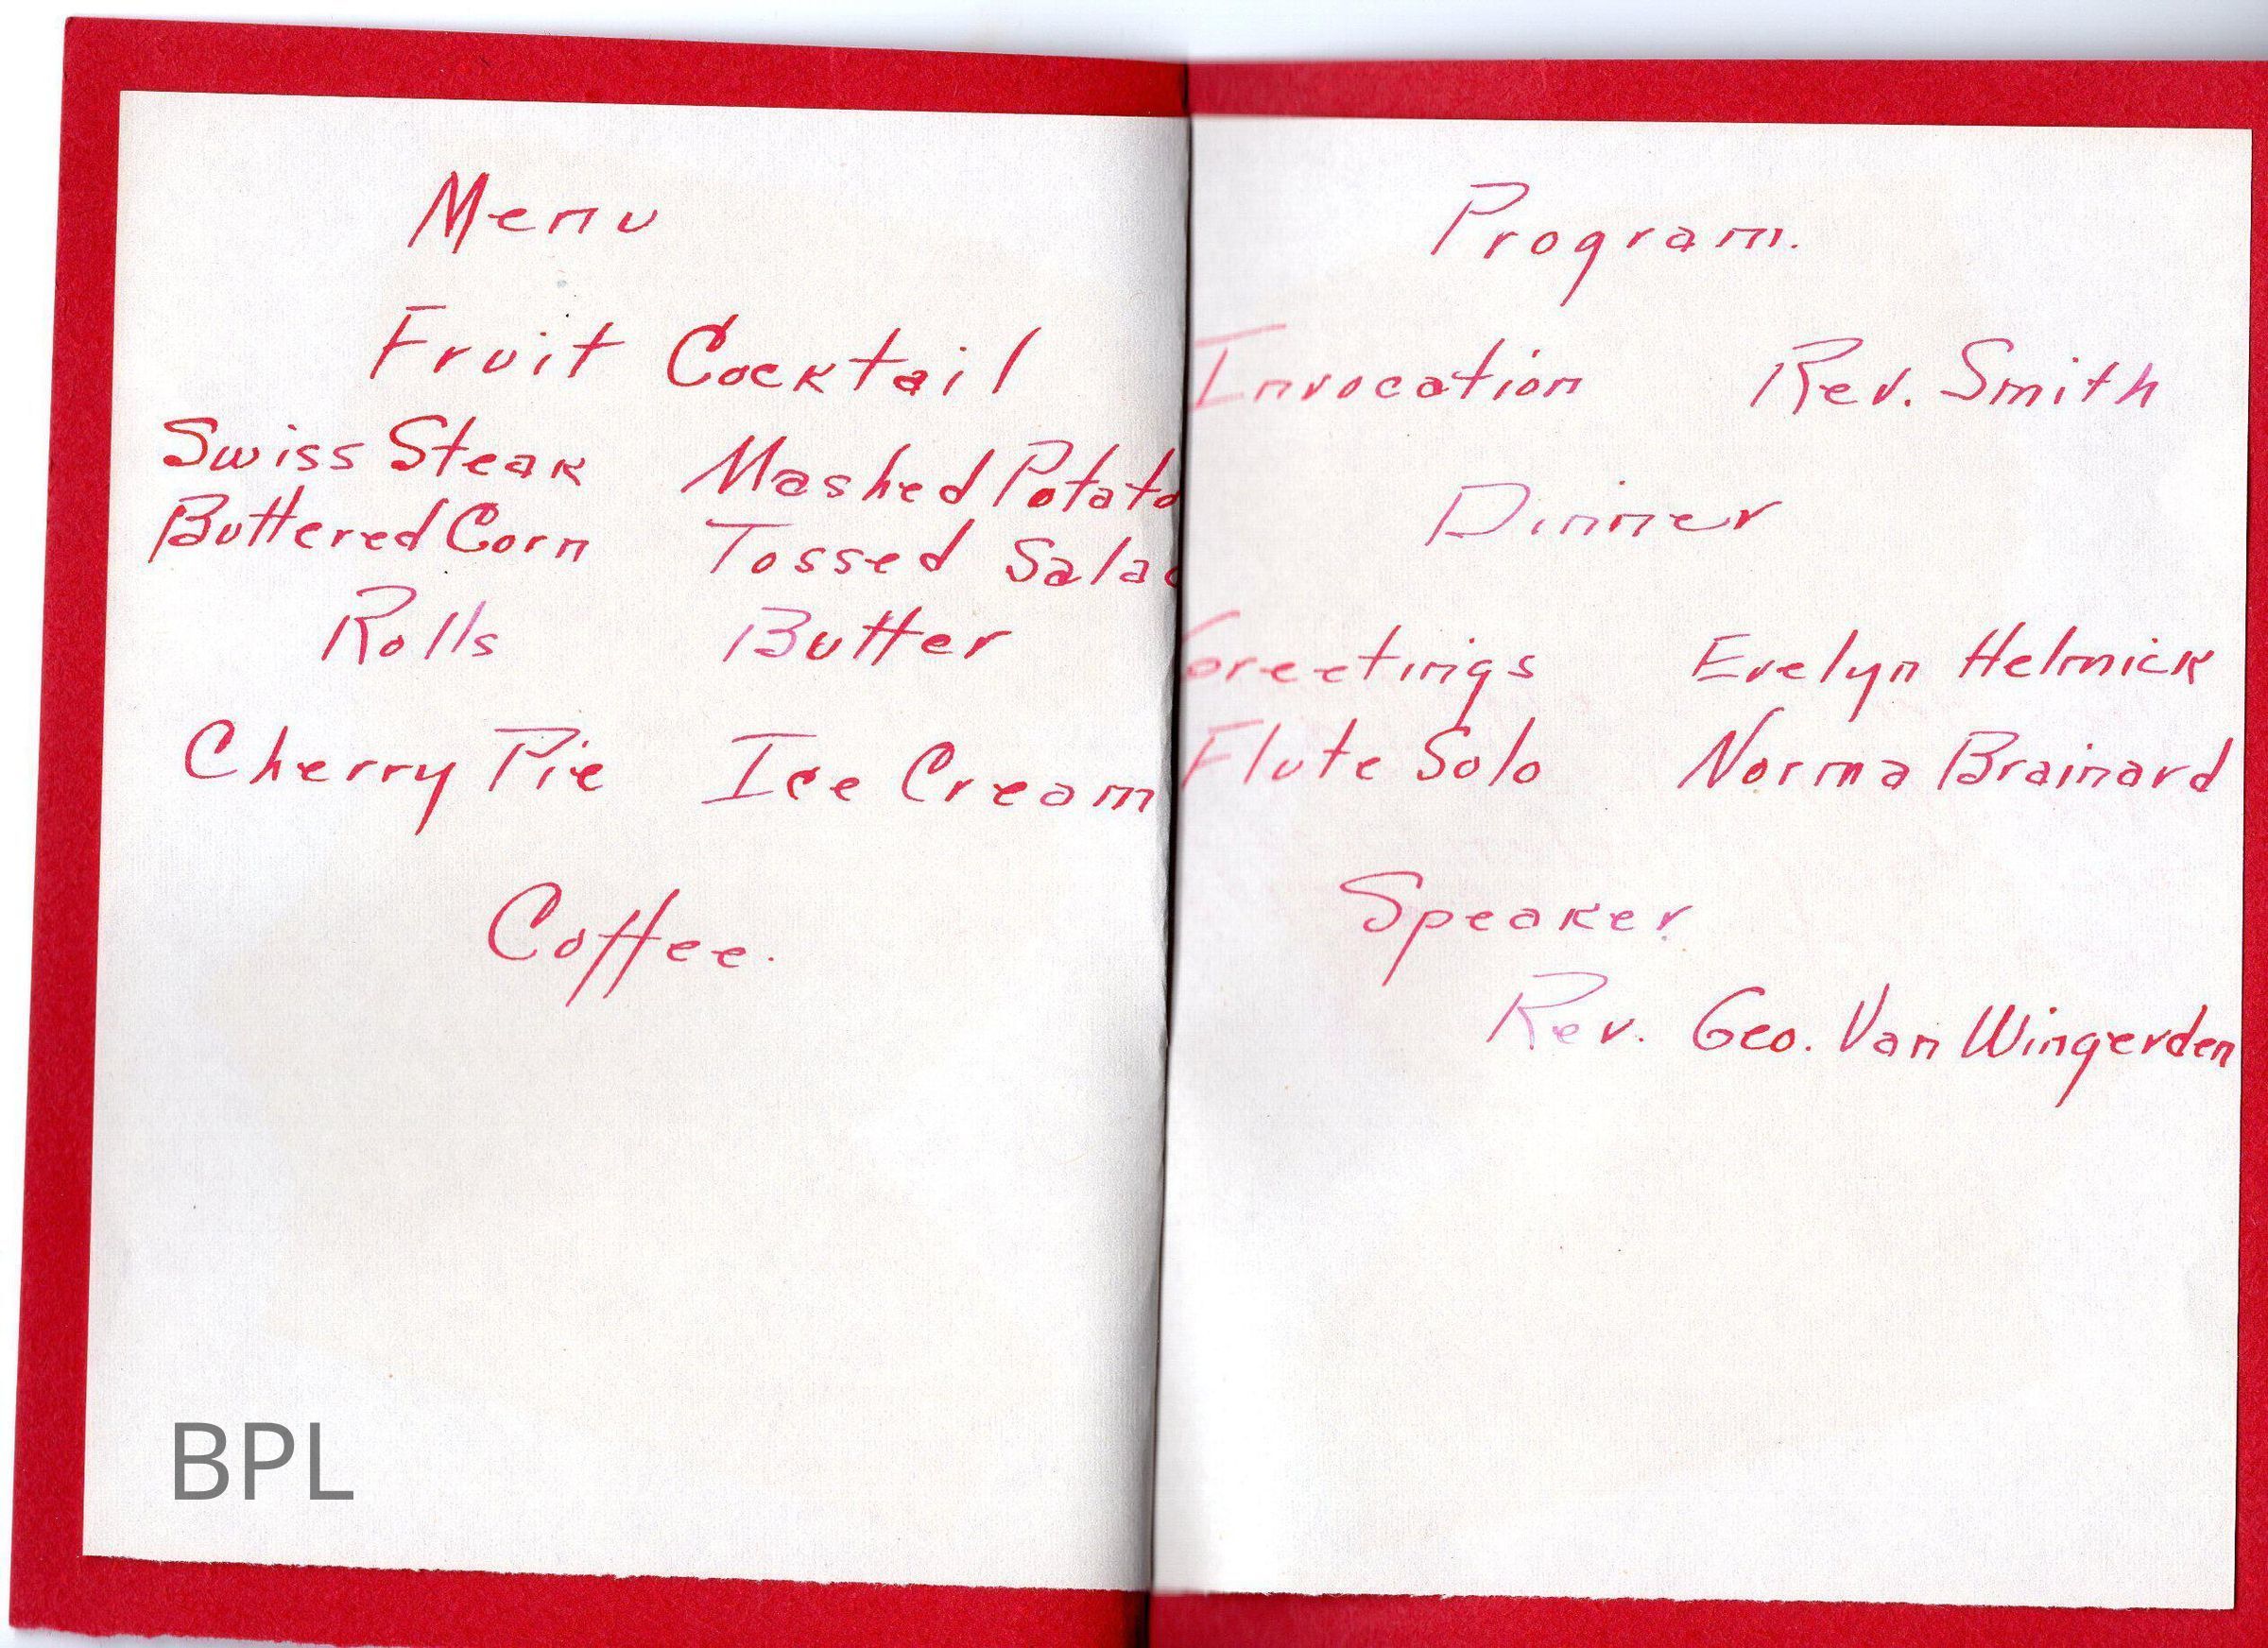 Menu
Fruit Cocktail
Swiss Steak Mashed Potato
Buttered Corn Tossed Salad
Rolls Butter
Cherry Pie Ice Cream
Coffee.
BPL
Program.
Invocation Rev. Smith
Dinner
Greetings Evelyn Helmick
Flute Solo Norma Brainard
Speaker
Rev. Geo. Van Wingerden